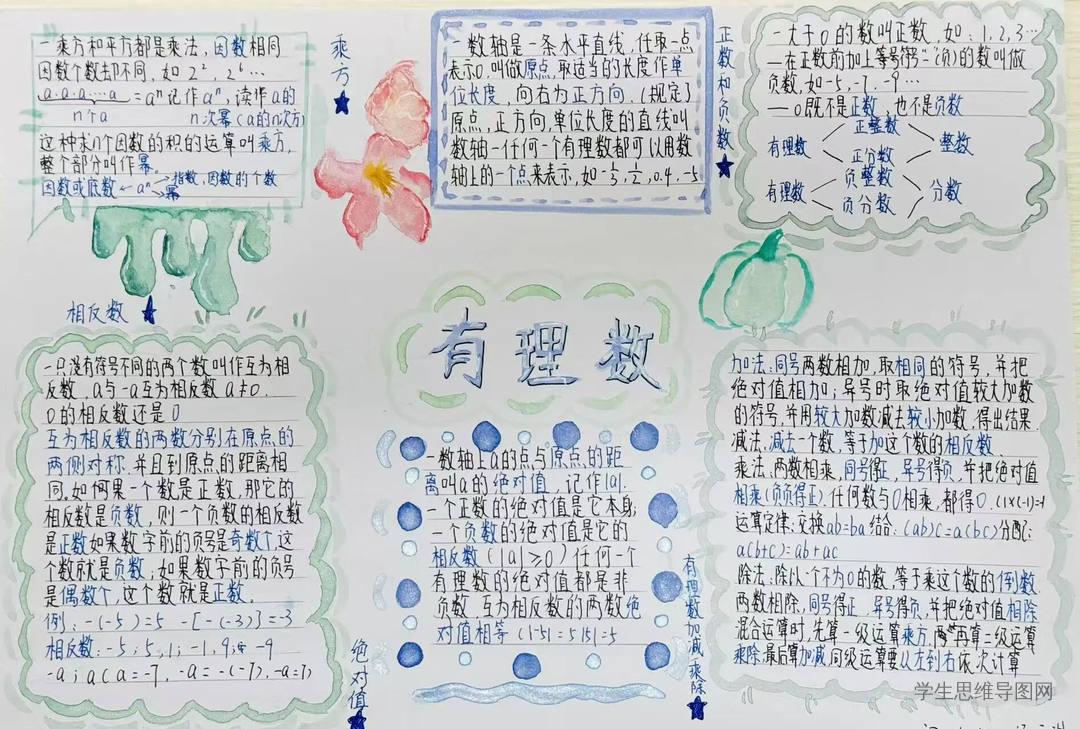 乘方
一乘方和平方都是乘法，因数相同
因数个数却不同，如2²，2⁶…
a·a·a…a=aⁿ记作aⁿ，读作a的
n个a n次幂（a的n次方）
这种求n个因数的积的运算叫乘方，
整个部分叫作幂。
因数或底数←aⁿ→指数，因数的个数
幂
一数轴是一条水平直线，任取一点
表示0，叫做原点，取适当的长度作单
位长度，向右为正方向，（规定）
原点，正方向，单位长度的直线叫
数轴一任何一个有理数都可以用数
轴上的一个点来表示，如
正数和负数
一大于0的数叫正数，如：1，2，3…
—在正数前加上等号符"-"（负）的数叫做
负数，如-5，-7，-9…
—0既不是正数，也不是负数
正整数
有理数 整数
正分数
负整数
有理数 分数
负分数
有理数
相反数
一只没有符号不同的两个数叫作互为相
反数，a与-a互为相反数a≠0.
0的相反数还是0
互为相反数的两数分别在原点的
两侧对称，并且到原点的距离相
同。如何果一个数是正数，那它的
相反数是负数，则一个负数的相反数
是正数如果数字前的负号是奇数个，这
个数就是负数；如果数字前的负号
是偶数个，这个数就是正数。
例：-(-5)=5 -[-(-3)]=-3
相反数：-5；5，1；-1，9；-9
-a；a(a=-7，-a=-(-7)，-a=7)
绝对值
一数轴上a的点与原点的距
离叫a的绝对值，记作|a|.
一个正数的绝对值是它本身；
一个负数的绝对值是它的
相反数（|a|≥0）任何一个
有理数的绝对值都是非
负数，互为相反数的两数绝
对值相等（|-5|=5 |5|=5
有理数加减乘除
加法：同号两数相加，取相同的符号，并把
绝对值相加；异号时取绝对值较大加数
的符号，并用较大加数减去较小加数，得出结果
减法：减去一个数，等于加这个数的相反数.
乘法：两数相乘，同号得正，异号得负，并把绝对值
相乘（负负得正）任何数与0相乘，都得0.（1×(-1)=-1
运算定律：交换ab=ba结合：(ab)c=a(bc)分配：
a(b+c)=ab+ac
除法：除以一个不为0的数，等于乘这个数的倒数.
两数相除，同号得正，异号得负，并把绝对值相除
混合运算时，先算一级运算乘方，再算二级运算
乘除最后算加减，同级运算要从左到右依次计算
学生思维导图网